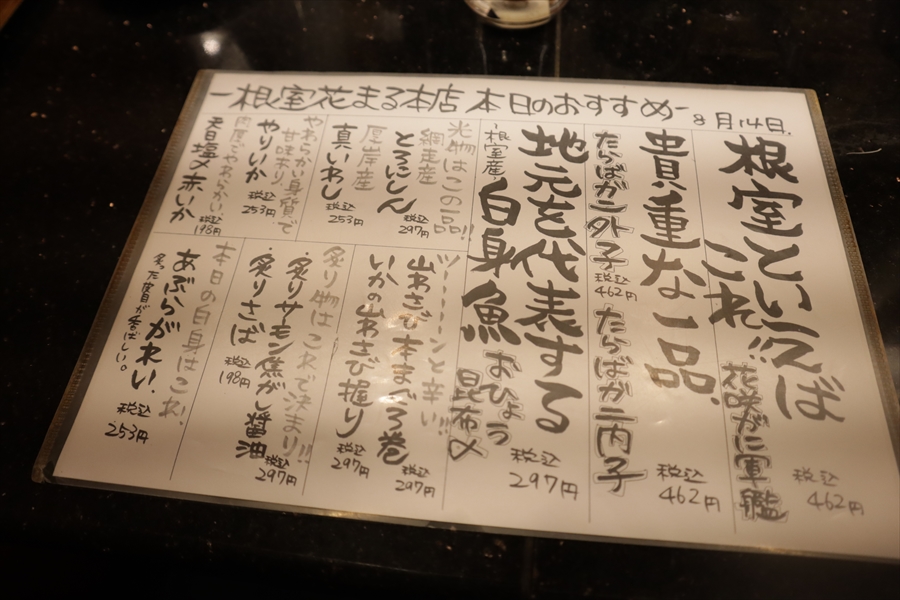 -根室花まる本店 本日のおすすめ-
8月14日.
根室といえば
これ!!
花咲がに軍艦
税込
462円
貴重な一品.
たらばがに外子
税込
462円
たらばがに内子
税込
462円
地元を代表する
根室産,
白身魚
おひょう
昆布〆
税込
297円
光物はこの一品!!
網走産
とろにしん
税込
297円
厚岸産
真いわし
税込
253円
やわらかい身質で
甘味あり.
やりいか
税込
253円
肉厚でやわらかい.
君日塩〆赤いか
税込
198円
ツーーーーンと辛い!!
山わさび本まぐろ巻
税込
297円
いかの山わさび握り
税込
297円
炙り物はこれで決まり!!
炙りサーモン焦がし醤油
税込
297円
炙りさば
税込
198円
本日の白身はこれ!
あぶらがれい.
炙った皮目が香ばしい。
税込
253円